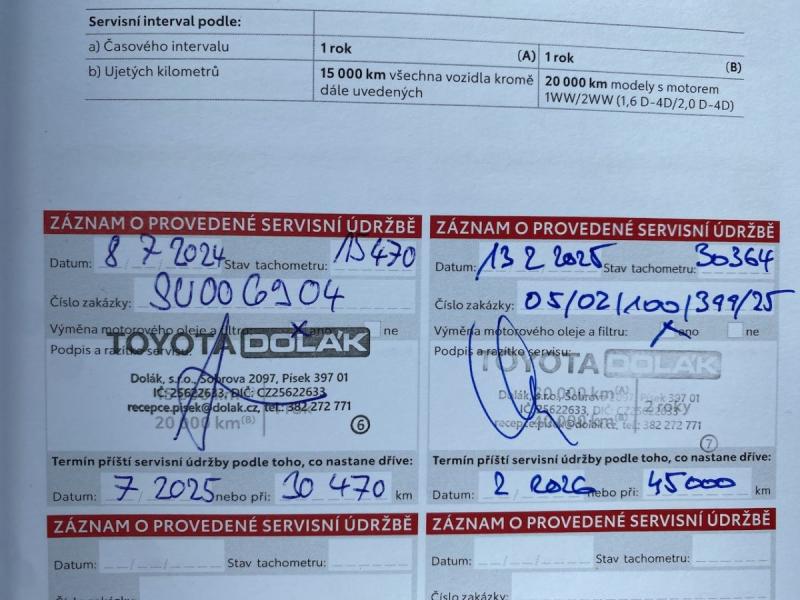 Servisní interval podle:
a) Časového intervalu 1 rok (A) 1 rok (B)
b) Ujetých kilometrů 15 000 km všechna vozidla kromě 20 000 km modely s motorem
dále uvedených 1WW/2WW (1,6 D-4D/2,0 D-4D)
ZÁZNAM O PROVEDENÉ SERVISNÍ ÚDRŽBĚ
Datum: 8 7 2024 Stav tachometru: 15 470
Číslo zakázky: SU00G904
Výměna motorového oleje a filtru: ano ne
Podpis a razítko servisu:
TOYOTA DOLÁK
Dolák, s.r.o., Sobrova 2097, Písek 397 01
IČ:25622633, DIČ: CZ25622633
recepce.pisek@dolak.cz, tel.: 382 272 771
20 000 km(B)
6
Termín příští servisní údržby podle toho, co nastane dříve:
Datum: 7 2025 nebo při: 30 470 km
ZÁZNAM O PROVEDENÉ SERVISNÍ ÚDRŽBĚ
Datum: 13 2 2025 Stav tachometru: 30364
Číslo zakázky: 05/02/100/399/25
Výměna motorového oleje a filtru: ano ne
Podpis a razítko servisu:
TOYOTA DOLÁK
30 000 km(A)
Dolák, s.r.o., Sobrova 2097, Písek 397 01
IČ:25622633, DIČ: CZ25622633
2 roky
recepce.pisek@dolak.cz, tel.: 382 272 771
7
Termín příští servisní údržby podle toho, co nastane dříve:
Datum: 2 2026 nebo při: 45000 km
ZÁZNAM O PROVEDENÉ SERVISNÍ ÚDRŽBĚ
Datum: Stav tachometru:
Číslo zakázky:
ZÁZNAM O PROVEDENÉ SERVISNÍ ÚDRŽBĚ
Datum: Stav tachometru:
Číslo zakázky: